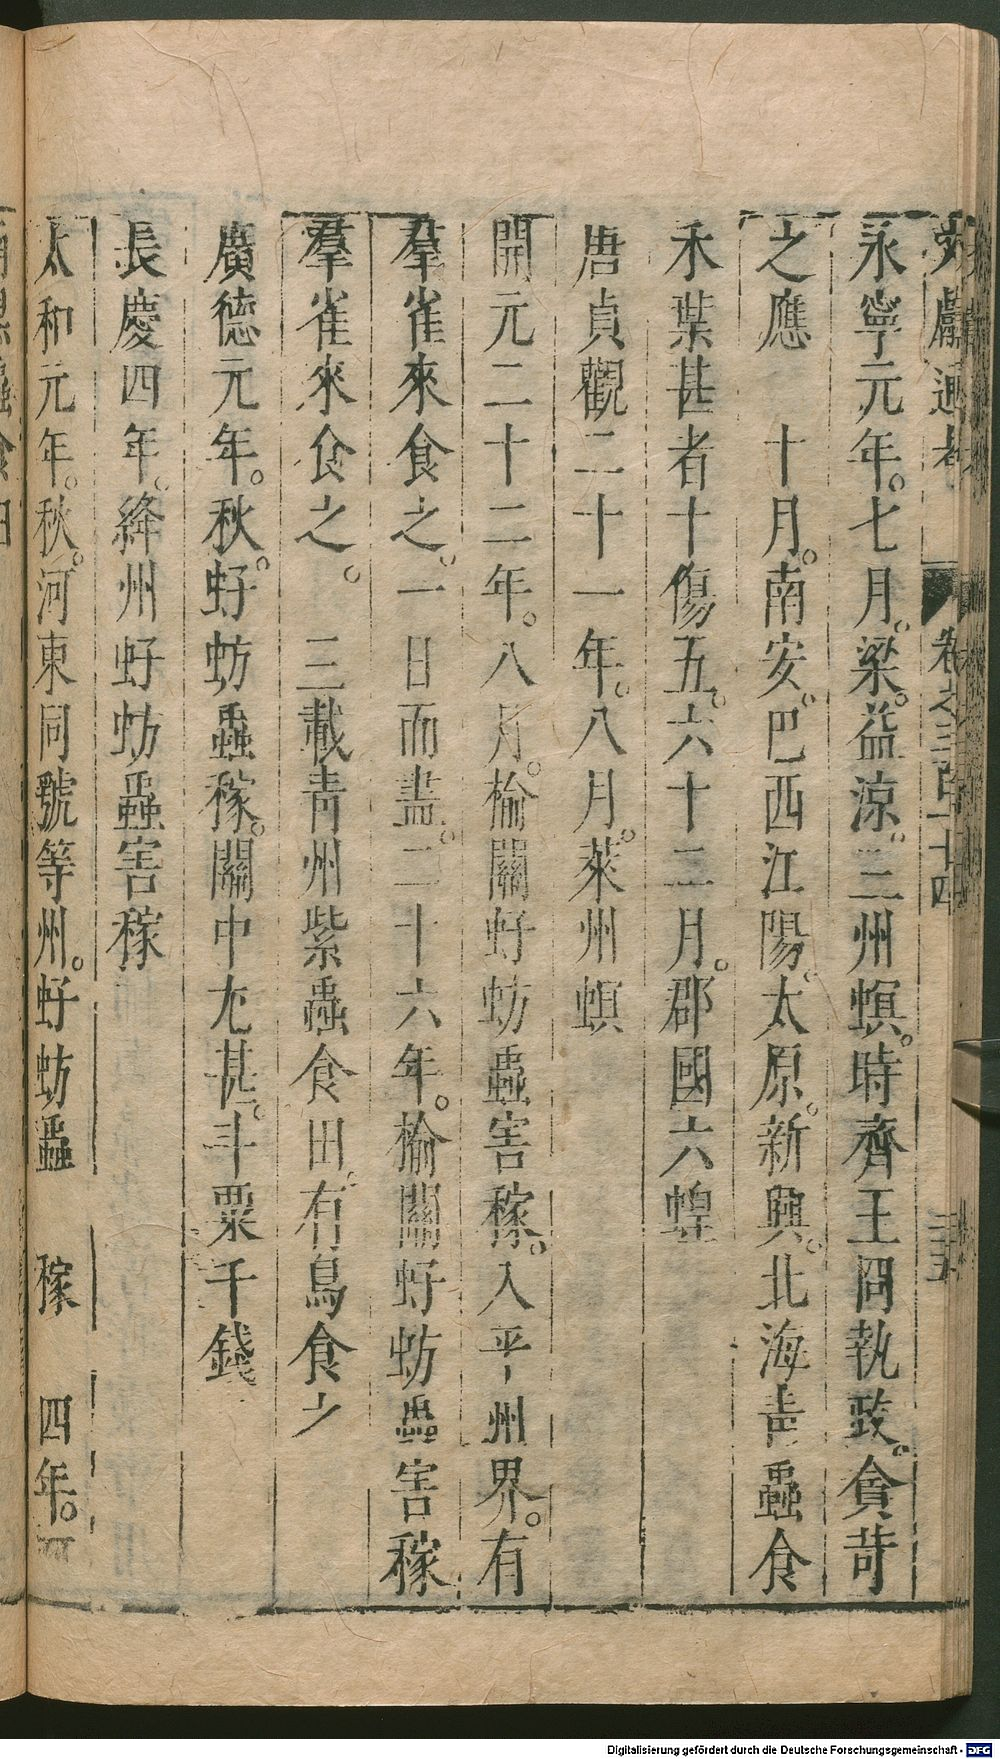 文獻通考 卷之三百十四 三五
永寧元年。七月。梁。益涼。三州螟。時齊王冏執政。貪苛
之應 十月。南安。巴西江陽。太原。新興。北海青蟲食
禾葉甚者十傷五。六十二月。郡國六蝗
唐貞觀二十一年。八月。萊州螟
開元二十二年。八月。榆關蚄蟲害稼。入平州界。有
羣雀來食之。一日而盡。二十六年。榆關虸蚄蟲害稼
羣雀來食之。 三載青州紫蟲食田。有鳥食之
廣德元年。秋。虸蚄蟲稼。關中尤甚。斗粟千錢
長慶四年。絳州虸蚄蟲害稼
太和元年。秋。河東同號等州。虸蚄蟲 稼 四年。
Digitalisierung gefördert durch die Deutsche Forschungsgemeinschaft - DFG